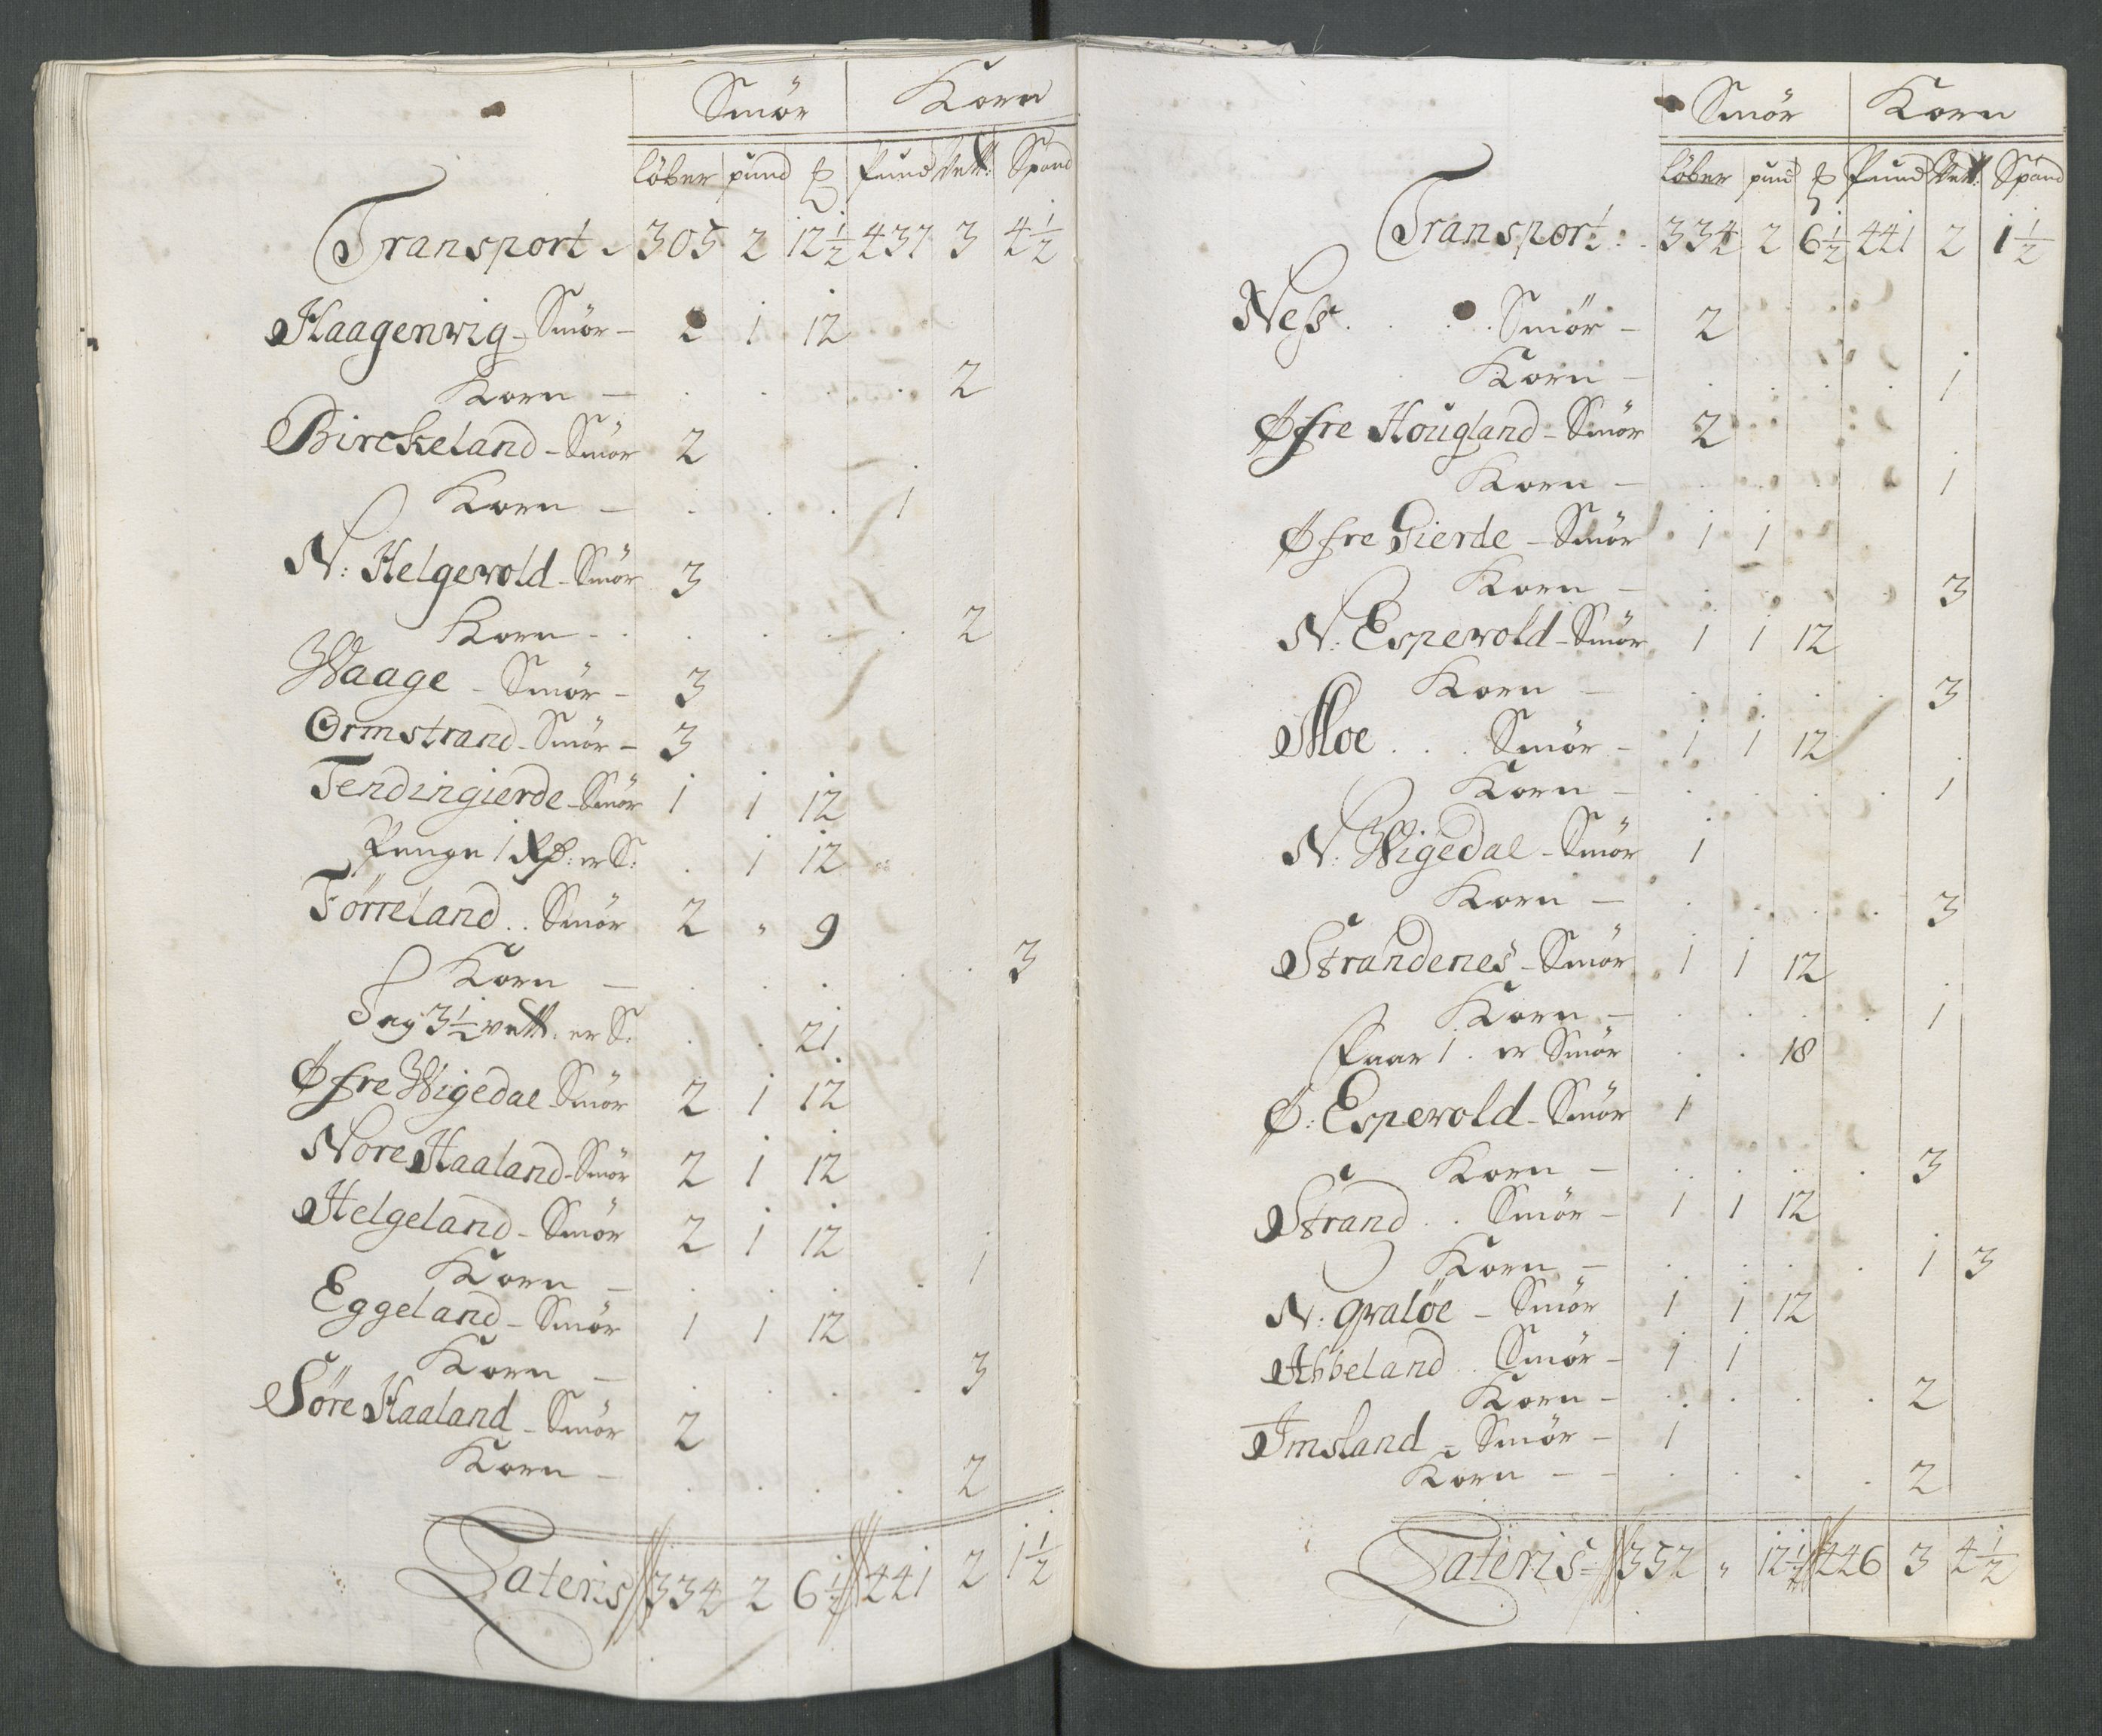 Smör Korn
löber pund ℔ Pund Vett: Spand
Transport 305 2 12½ 437 3 4½
Haagenvig - Smör - 2 1 12
Korn - . . . . 2
Birckeland - Smör 2
Korn - . . . 1
N: Helgevold - Smör 3
Korn - . . . . 2
Waage - Smör - 3
Ormstrand - Smör - 3
Tendingierde - Smör 1 1 12
Penge 1 Rd: er S: . 1 12
Törreland .. Smör 2 " 9
Korn - . . . . . 3
Sey 3½ vett: er S: . . 21
Øfre Wigedal Smör 2 1 12
Nore Haaland - Smör 2 1 12
Helgeland - Smör 2 1 12
Korn - . . . . 1
Eggeland - Smör 1 1 12
Korn - . . . . 3
Söre Haaland - Smör 2
Korn - . . . . 2
Lateris 334 2 6½ 441 2 1½
Smör Korn
löber pund ℔ Pund Vett: Spand
Transport: . 334 2 6½ 441 2 1½
Ness . . . Smör - 2
Korn - . . . . 1
Øfre Hougland - Smör 2
Korn - . . . . 1
Øfre Gierde - Smör 1 1
Korn - . . . . 3
N: Espevold - Smör 1 1 12
Korn - . . . . 3
Moe . . . Smör - 1 1 12
Korn - . . . . 1
N: Wigedal - Smör 1
Korn - . . . . 3
Strandenes - Smör 1 1 12
Korn - . . . . 1
Faar 1 . er Smör . . 18
Ø: Espevold - Smör 1
Korn - . . . . 3
Strand . . Smör - 1 1 12
Korn - . . . . 1 3
N: Qvaløe - Smör 1 1 12
Abbeland . Smör - 1 1
Korn - . . . . 2
Imsland - Smör - 1
Korn - - . . . . 2
Lateris 352 " 12½ 446 3 4½